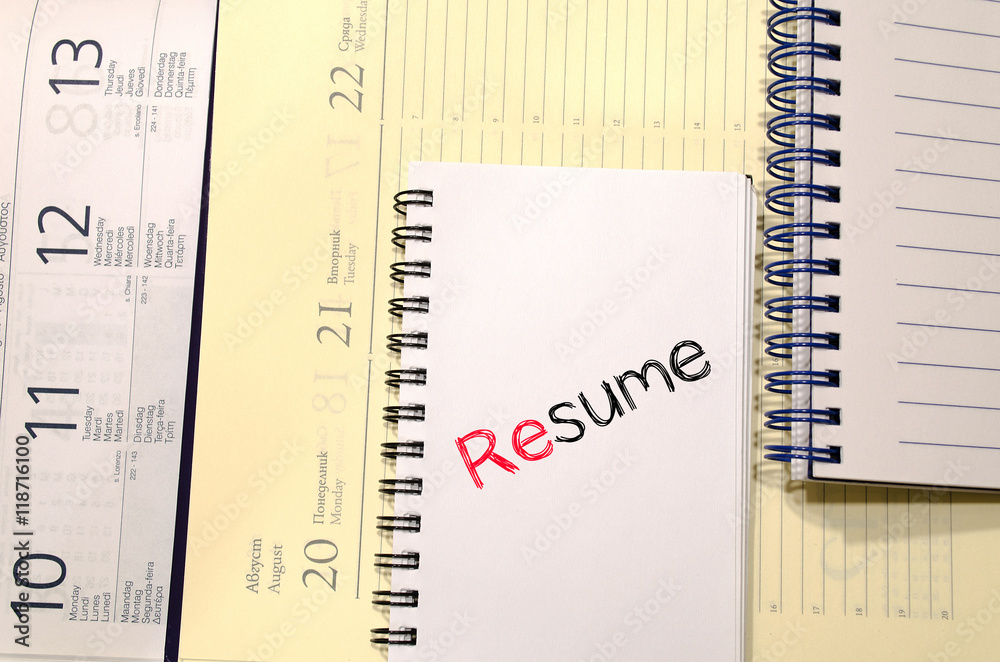 13
Thursday
Jeudi
Jueves
Giovedì
Donderdag
Donnerstag
Quinta-feira
Πέμπτη
s. Ercolano
224 - 141
12
Wednesday
Mercredi
Miércoles
Mercoledì
Woensdag
Mittwoch
Quarta-feira
Τετάρτη
s. Chiara
223 - 142
11
Tuesday
Mardi
Martes
Martedì
Dinsdag
Dienstag
Terça-feira
Τρίτη
s. Lorenzo
222 - 143
10
Monday
Lundi
Lunes
Lunedì
Maandag
Montag
Segunda-feira
Δευτέρα
Αύγουστος
Agosto
22
Сряда
Wednesday
21
Вторник
Tuesday
20
Понеделник
Monday
Август
August
7
8
9
10
11
12
13
14
15
16
17
18
19
20
Resume
Adobe Stock | #118716100